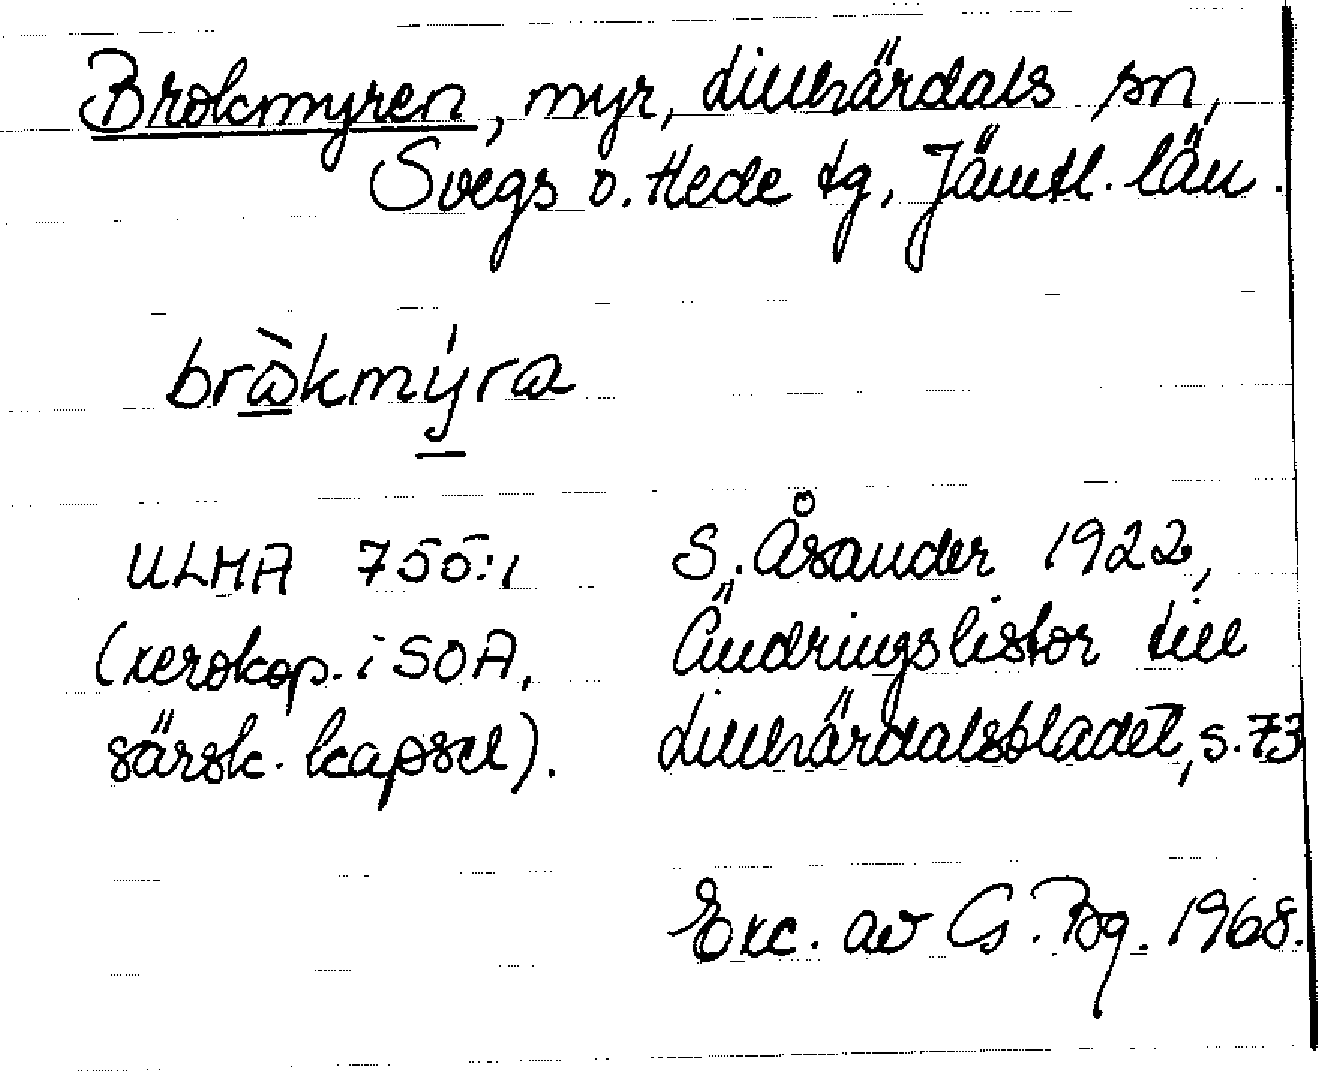 Brokmyren, myr, Lillhärdals sn,
Svegs o. Hede tg, Jämtl. län.
bràkmýra
ULMA 755:1
(xerokop. i SOA,
särsk. kapsel).
S. Åsander 1922,
Ändringslistor till
Lillhärdalsbladet, s. 73
Exc. av G. Bg. 1968.